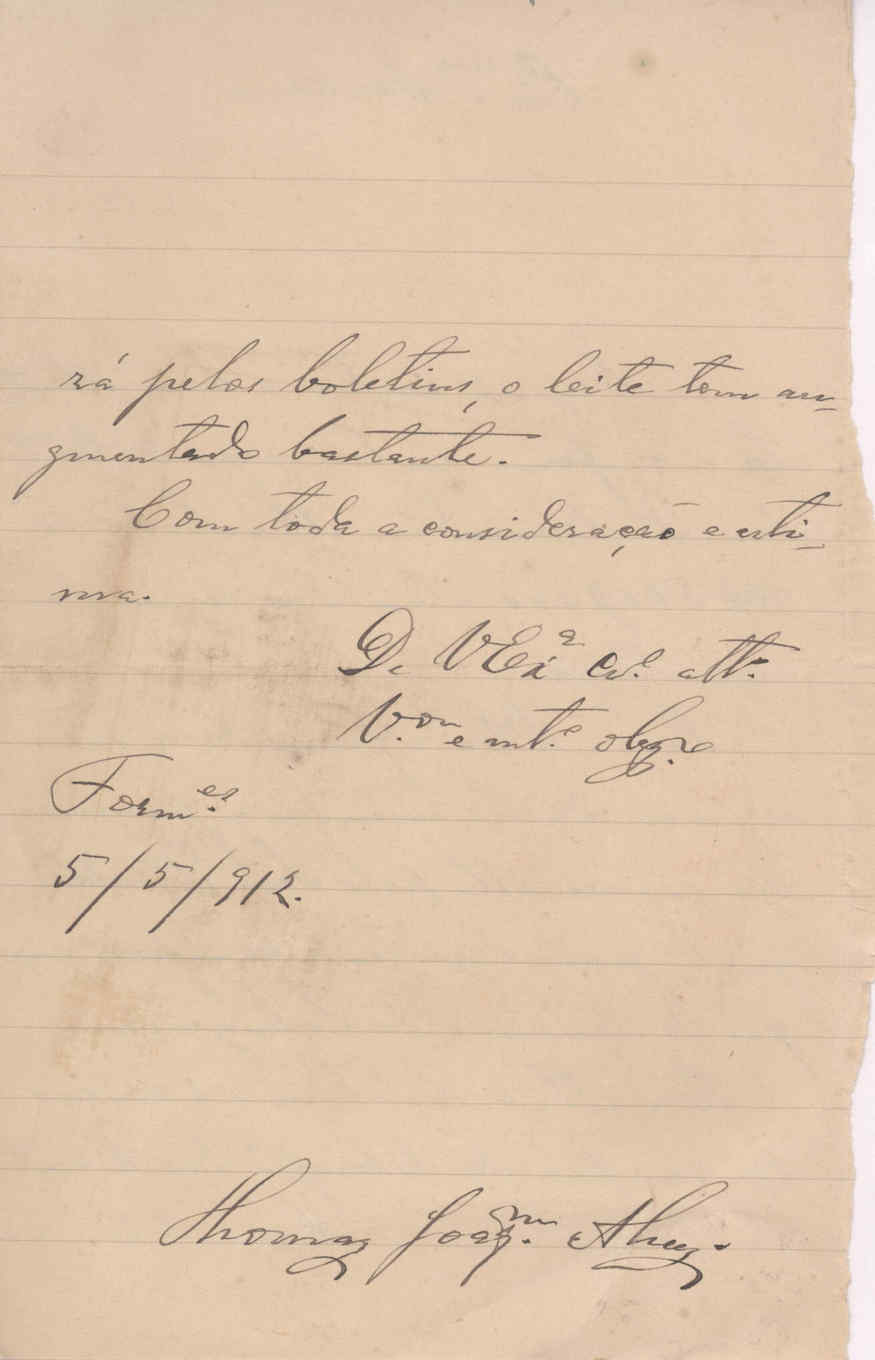 rá pelos boletins, o leite tem au-
gmentado bastante.
Com toda a consideração e esti-
ma.
De V Exª Crº attº
V.ºʳ e mtº obgº
Form.es
5/5/912.
Thomaz Joaqm. Alvez.